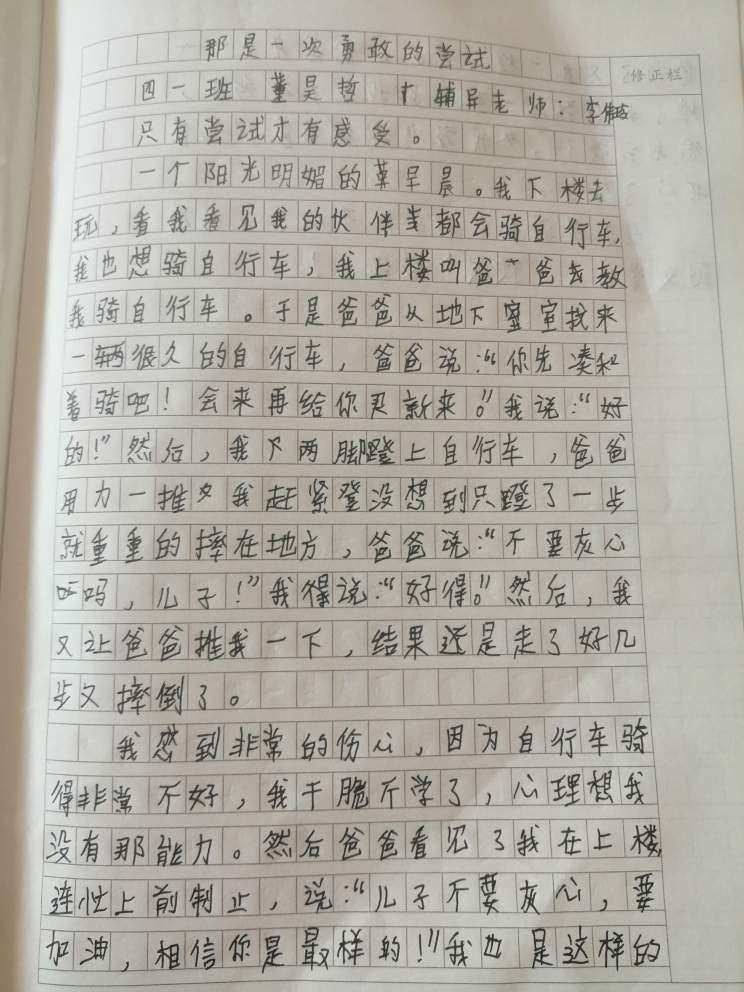 那是一次勇敢的尝试
修正栏
四一班 董昊哲 辅导老师：李
只有尝试才有感受。
一个阳光明媚的早晨。我下楼去
玩，看我看见我的伙伴都会骑自行车，
我也想骑自行车，我上楼叫爸爸去教
我骑自行车。于是爸爸从地下室找来
一辆很久的自行车，爸爸说：“你先凑和
着骑吧！会来再给你买新来。”我说：“好
的！”然后，我两脚蹬上自行车，爸爸
用力一推我赶紧登没想到只蹬了一步
就重重的摔在地方，爸爸说：“不要灰心
吗，儿子！”我得说：“好得。”然后，我
又让爸爸推我一下，结果还是走了好几
步又摔倒了。
我感到非常的伤心，因为自行车骑
得非常不好，我干脆不学了，心理想我
没有那能力。然后爸爸看见了我在上楼，
连忙上前制止，说：“儿子不要灰心，要
加油，相信你是最样的！”我也是这样的